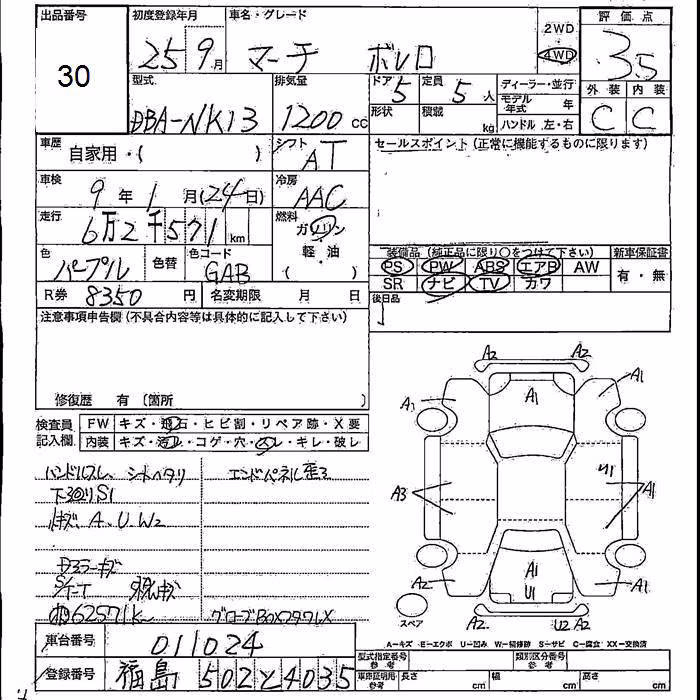 出品番号 初度登録年月 車名・グレード 評価点
30 25 9月 マーチ ボレロ 2WD 4WD 3.5
型式 排気量 ドア 5 定員 5人 ディーラー・並行 外装 内装
DBA-NK13 1200 cc 形状 積載 kg モデル年式 年 C C
ハンドル 左・右
車歴 自家用・( ) シフト AT セールスポイント (正常に機能するものに限ります)
車検 9年 1月(24日) 冷房 AAC
走行 6万2千571 km 燃料 ガソリン 軽・油 ( )
色 パープル 色替 色コード GAB
装備品 (純正品に限り○をつけて下さい) 新車保証書
PS PW ABS エアB AW 有・無
SR ナビ TV カワ
R券 8350 円 名変期限 月 日 後日品
注意事項申告欄 (不具合内容等は具体的に記入して下さい)
修復歴 有 (箇所 )
検査員記入欄 FW キズ・飛石・ヒビ割・リペア跡・X要
内装 キズ・汚レ・コゲ・穴・スレ・キレ・破レ
ハンドルスレ シートヘタリ エンドパネル歪ミ
下廻りS1
キズ A.U.W2
Dミラーキズ
62571k グローブBOX
A2 A2
A1 A1 A1
A3 U1 A1
A1
U1
A2 A2 U2 A2 A1
スペア
A-キズ E-エクボ U-凹み W-補修跡 S-サビ C-腐食 XX-交換済
車台番号 011024
登録番号 福島 502 と 4035
型式指定番号 参考 類別区分番号 参考
車庫証明用・参考 長さ cm 幅 cm 高さ cm